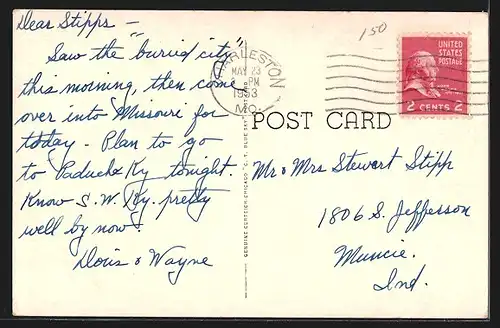 Dear Stipps -
Saw the "buried city"
this morning, then come
over into Missouri for
today. Plan to go
to Paducah Ky tonight.
Know S.W. Ky. pretty
well by now.
Doris & Wayne
150
CHARLESTON
MAY 23
PM
1953
MO.
UNITED
STATES
POSTAGE
2 CENTS 2
POST CARD
Mr & Mrs Stewart Stipp
1806 S. Jefferson
Muncie,
Ind.